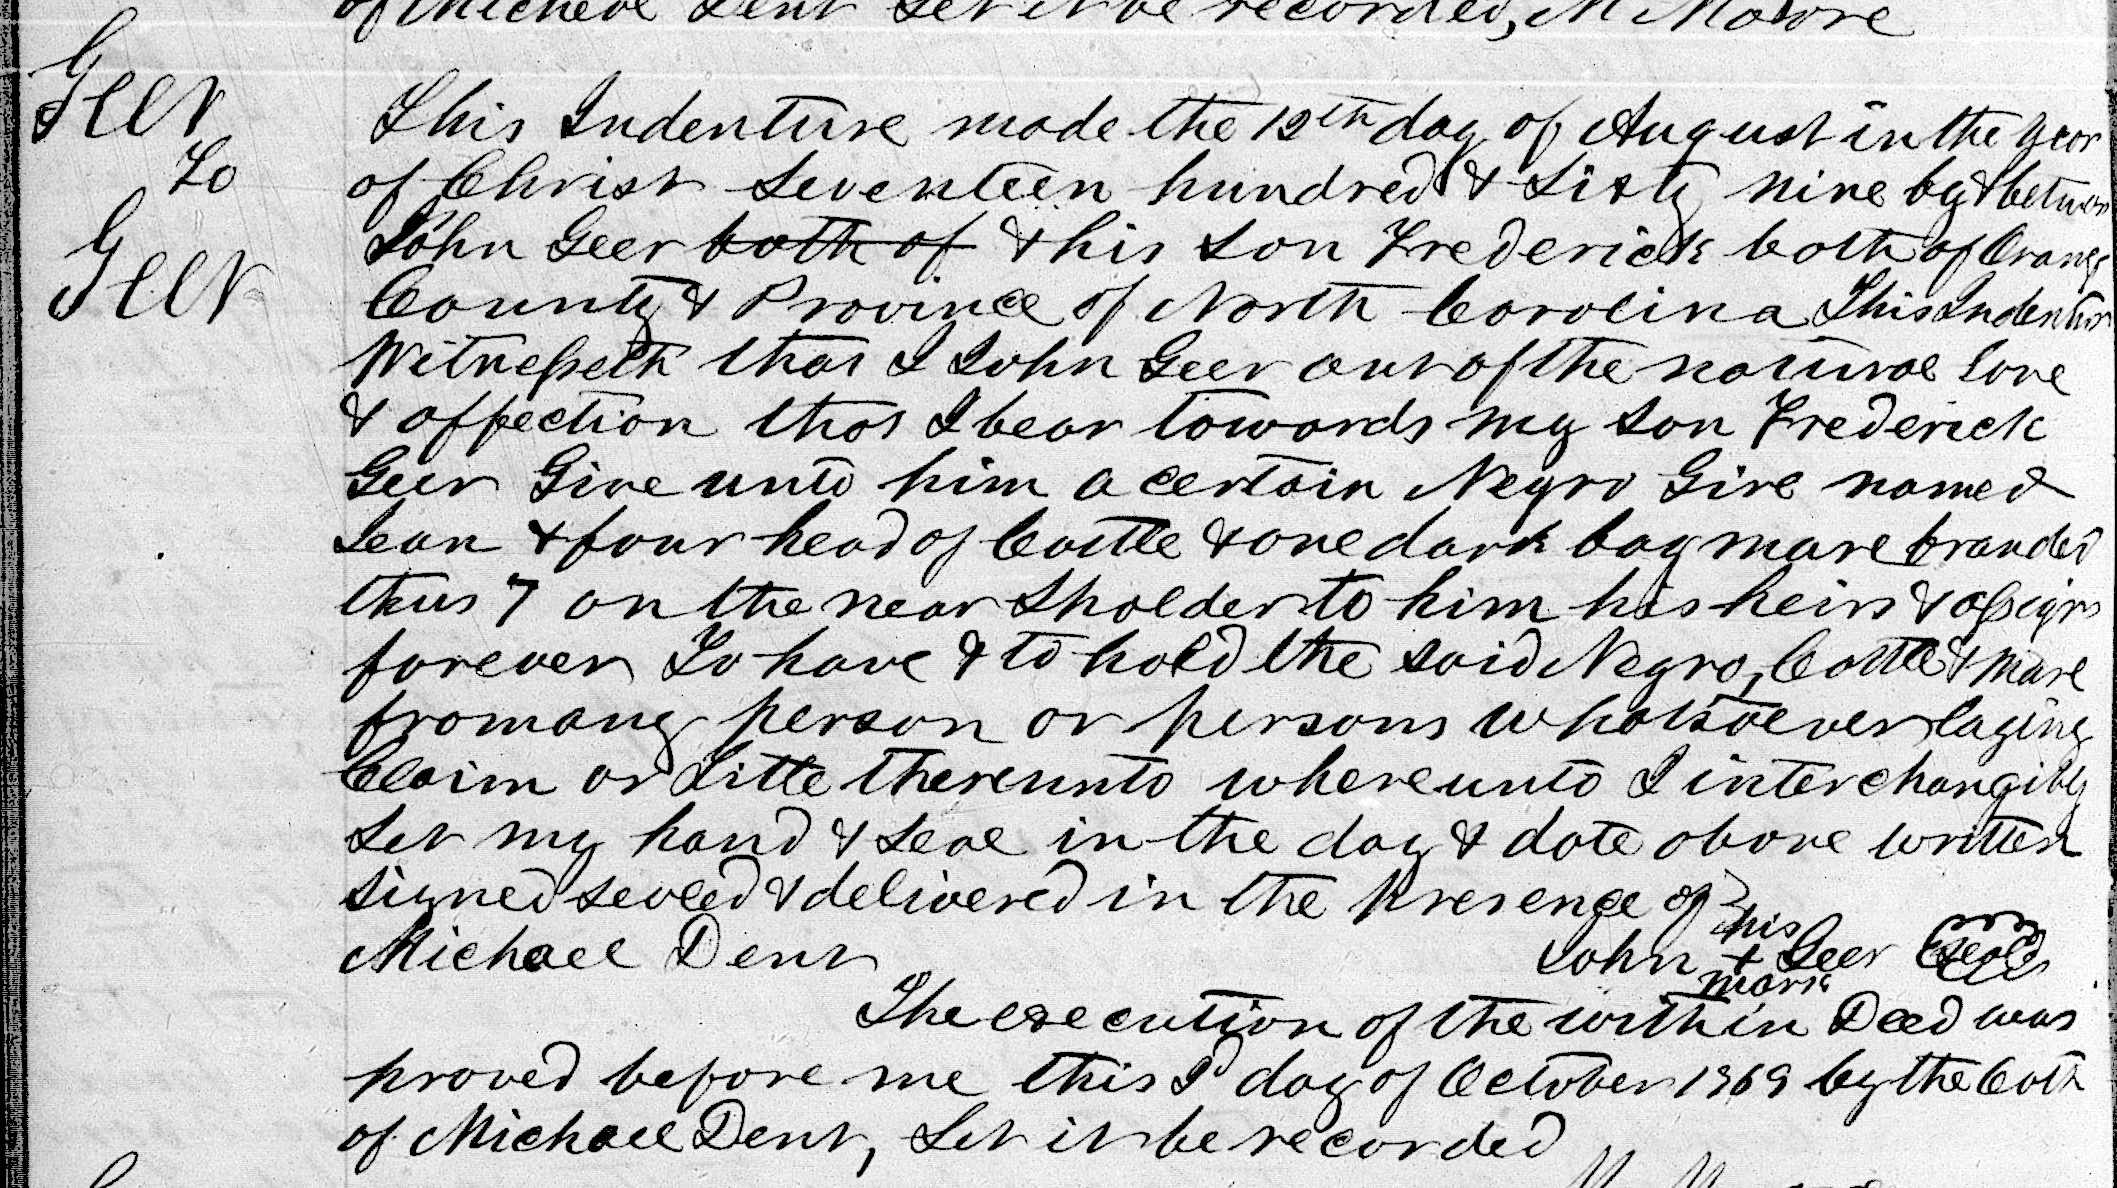 of Micheal Dent Let it be recorded, M Moore
Geer
To
Geer
This Indenture made the 12th day of August in the year
of Christ Seventeen hundred & Sixty nine by & between
John Geer both of & his Son Frederick both of Orange
County & Province of North Carolina This Indenture
Witnesseth that I John Geer out of the natural love
& affection that I bear towards my Son Frederick
Geer Give unto him a certain Negro Girl named
Lean & four head of Cattle & one dark bay mare branded
thus 7 on the near Sholder to him his heirs & assigns
forever To have & to hold the said Negro, Cattle & mare
from any person or persons whatsoever laying
Claim or Title thereunto whereunto I interchangibly
Set my hand & Seal in the day & date above written
signed sealed & delivered in the presence of
his
Michael Dent John + Geer Seal
mark
The execution of the within Deed was
proved before me this day of October 1769 by the Oath
of Michael Dent, Let it be recorded